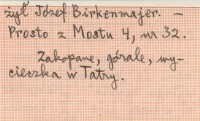 żył Józef Birkenmajer. —
Prosto z Mostu 4, nr 32.
Zakopane, górale, wy-
cieczka w Tatry.